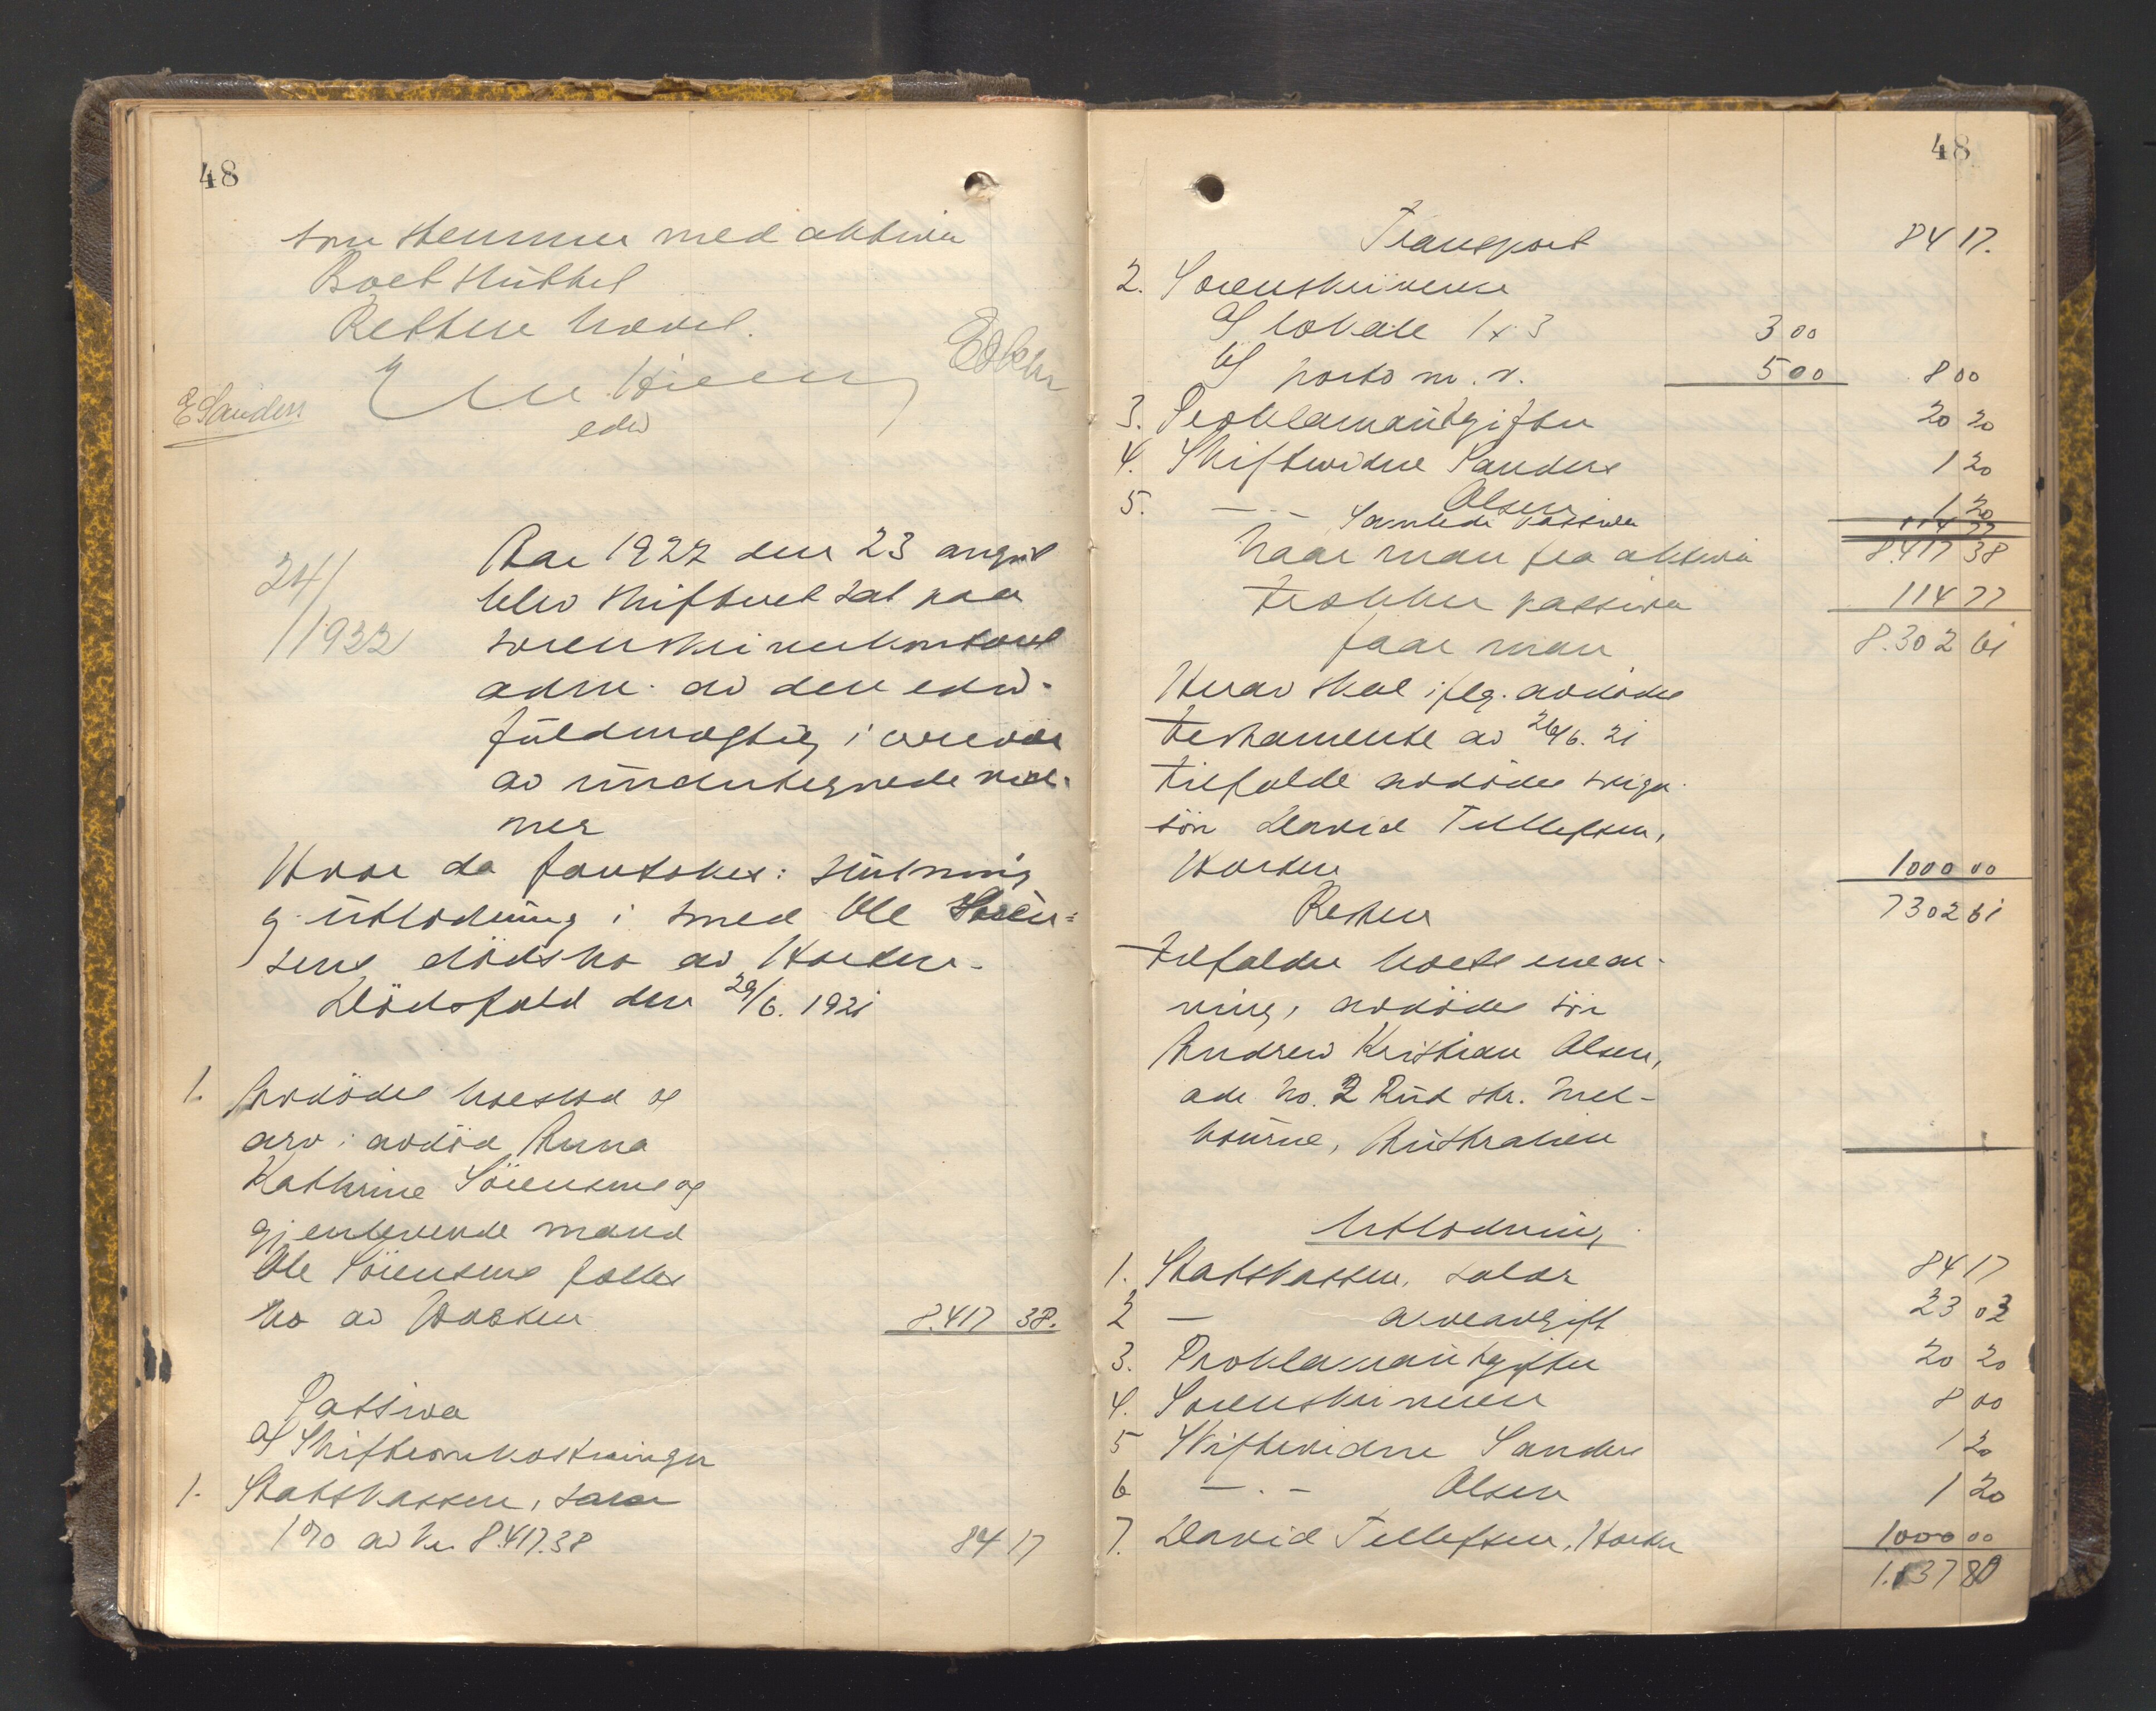 48
som stemmer med aktiva
Boet sluttet
Retten hævet.
E Sanders
edsv
24/1922
Aar 1922 den 23 august
blev skifteret sat paa
sorenskriverkontoret
adm. av den edsv.
fuldmægtig i overvær
av undertegnede vid-
ner
Hvor da foretokes: slutning
og utlodning i smed Ole Sören-
sens dödsbo av Horten.
Dödsfald den 29/6. 1921
1. Avdödes boeslod og
arv i avdöd Anna
Kathrine Sörensens og
gjenlevende mand
Ole Sörensens fælles
bo av Horten 8.417 38.
Passiva
a) Skifteomkostninger
1. Statskassen, salær
1 % av kr. 8.417.38 84 17
48
Transport 84 17.
2. Sorenskriveren
a) lokale 1 x 3 3 00
b) porto m. v. 5 00 8 00
3. Proklamautgifter 20 20
4. Skiftevidne Sanders 1 20
5. - . - Olsen 1 20
Samlede passiva 114 77
Naar man fra aktiva 8.417 38
trækker passiva 114 77
faar man 8.302 61
Herav skal iflg. avdödes
testamente av 26/6. 21
tilfalde avdödes sviger-
sön David Tellefsen,
Horten 1000 00
Resten 7302 61
tilfalder boets enear-
ving, avdödes sön
Andrew Kristian Olsen,
adr. No. 2 str. Mel-
bourne, Australien
Utlodning
1. Statskassen, salær 84 17
2 - arveavgift 23 03
3. Proklamautgifter 20 20
4. Sorenskriveren 8 00
5 Skiftevidne Sanders 1 20
6 - . - Olsen 1 20
7. David Tellefsen, Horten 1000 00
1.137 80